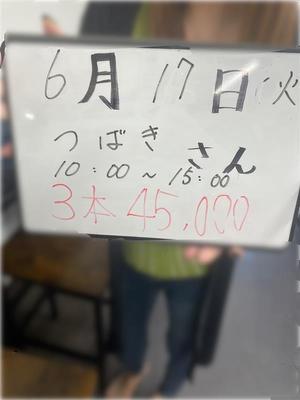 6月17日(火
つばきさん
10:00~15:00
3本45,000